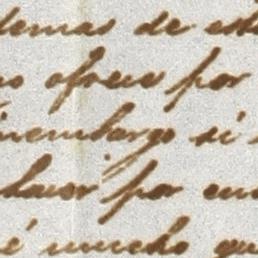 demas de est
no ofrece por
inembargo si
hacer por cu
é mucho qu